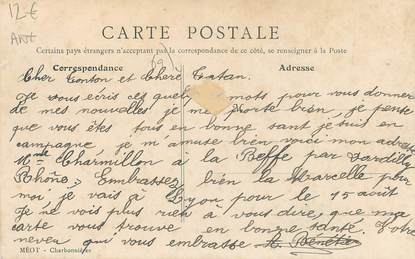 12€
ANT
CARTE POSTALE
Certains pays étrangers n'acceptant pas la correspondance de ce côté, se renseigner à la Poste
Correspondance
Adresse
69
Cher Tonton et Cheré Tatan.
Je vous écris ces quelq mots pour vous donner
de mes nouvelles je me porte bien, je pense
que vous êtes tous en bonne sant je suis en
campagne je m'amuse bien voici mon adresse
Mme Charmillon à la Beffe par
Rhône, Embrassez bien la Marcelle pour
moi, je vais à Lyon pour le 15 août
Je ne vois plus rien à vous dire, que ma
carte vous trouve en bonne santé, Votre
neveu qui vous embrasse
MÉOT - Charbonnières